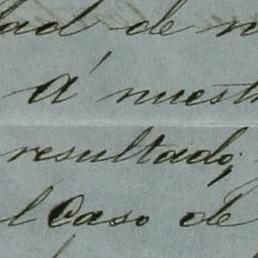 dad de n
A' nuest
resultado;
l Caso de